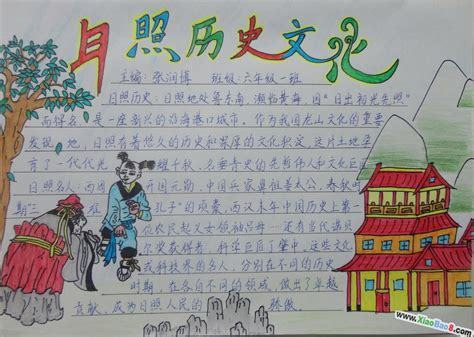 日照历史文化
主编：张润博 班级：六年级一班
日照历史：日照地处鲁东南，濒临黄海，因“日出初光先照”
而得名，是一座新兴的沿海港口城市。作为我国龙山文化的重要
发现地，日照有着悠久的历史和累厚的文化积淀，这片土地孕
育了一代代光耀千秋、名垂青史的先哲伟人和文化
日照名人：西周开国元勋，中国兵家鼻祖姜太公，春秋时
期 难“孔子”的项橐，西汉末年中国历史上第一
位农民起义女领袖吕母⋯还有当代诺贝
尔奖获得者、科学巨匠丁肇中，这些文
或科技界的名人，分别在不同的历史
时期，在各自不同的领域，做出了卓越
贡献，成为日照人民的骄傲。
www.XiaoBao8.com